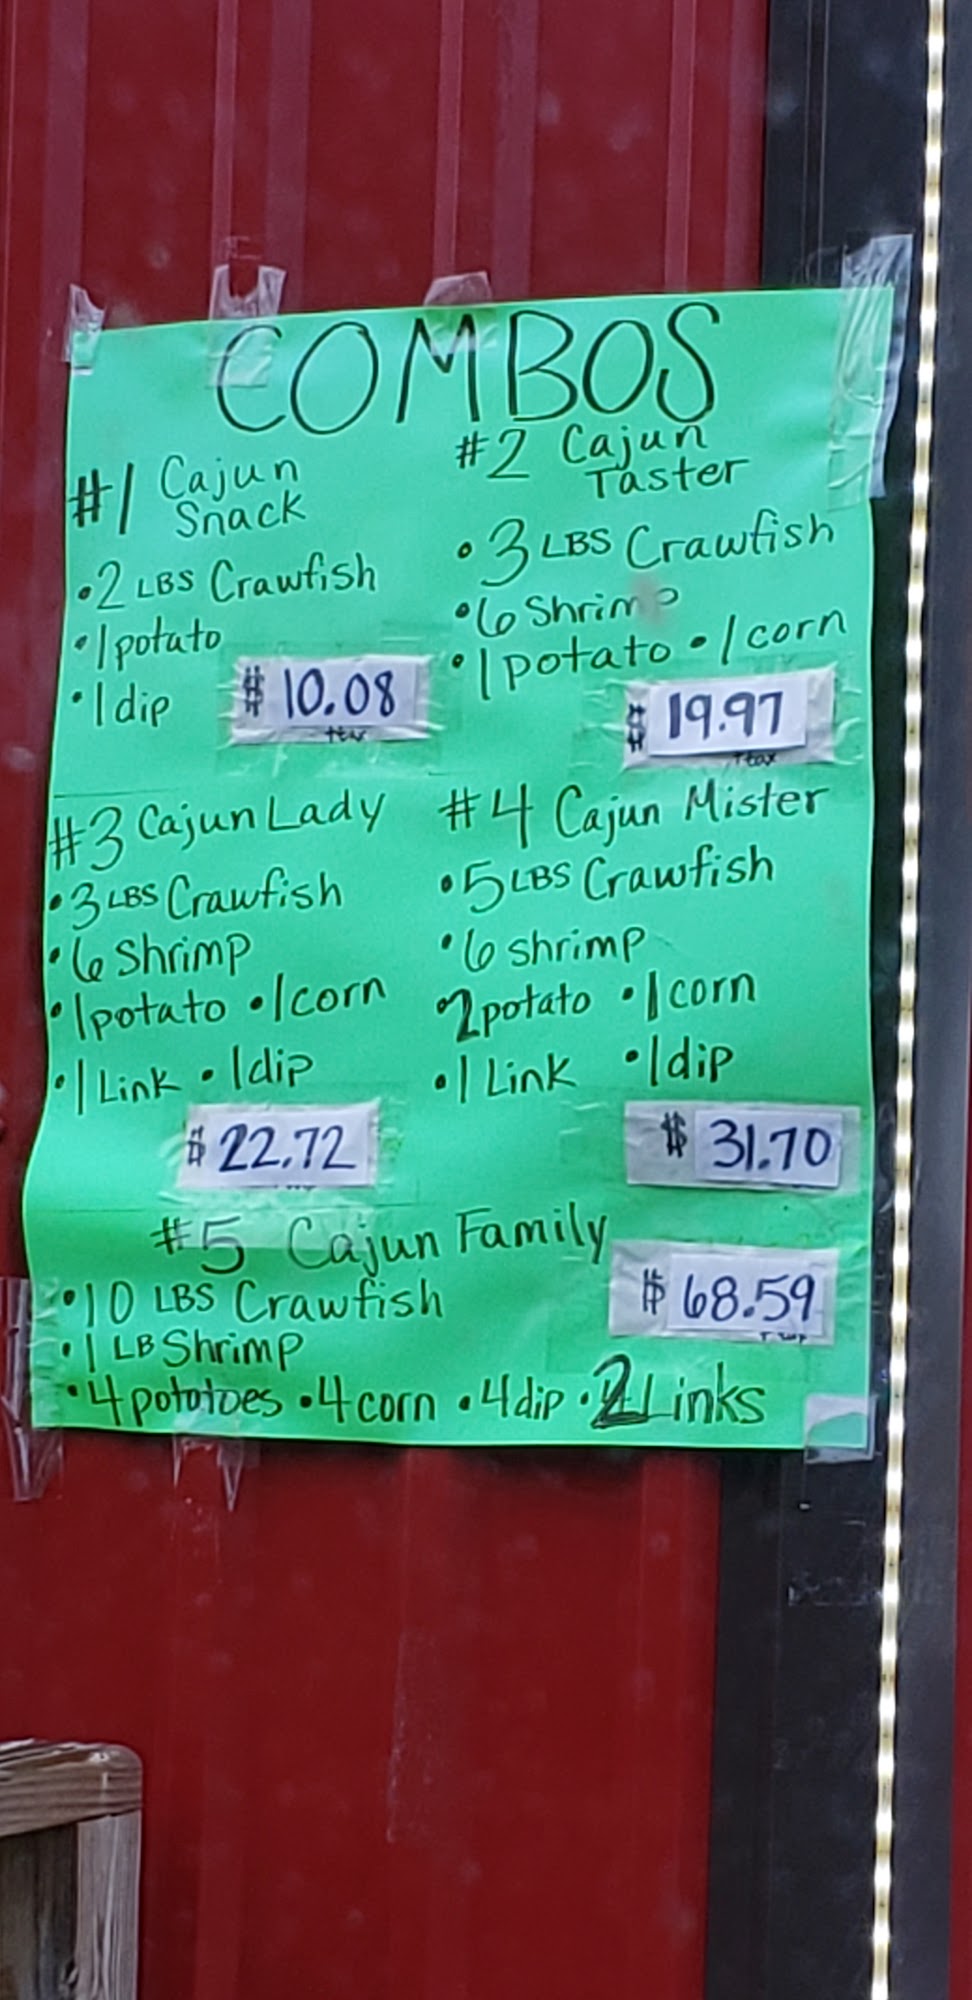 COMBOS
#1 Cajun
Snack
• 2 LBS Crawfish
• 1 potato
• 1 dip
$ 10.08
+tax
#2 Cajun
Taster
• 3 LBS Crawfish
• 6 Shrimp
• 1 potato • 1 corn
$ 19.97
+tax
#3 Cajun Lady
• 3 LBS Crawfish
• 6 Shrimp
• 1 potato • 1 corn
• 1 Link • 1 dip
$ 22.72
#4 Cajun Mister
• 5 LBS Crawfish
• 6 shrimp
• 2 potato • 1 corn
• 1 Link • 1 dip
$ 31.70
#5 Cajun Family
• 10 LBS Crawfish
• 1 LB Shrimp
• 4 pototoes • 4 corn • 4 dip • 2 Links
$ 68.59